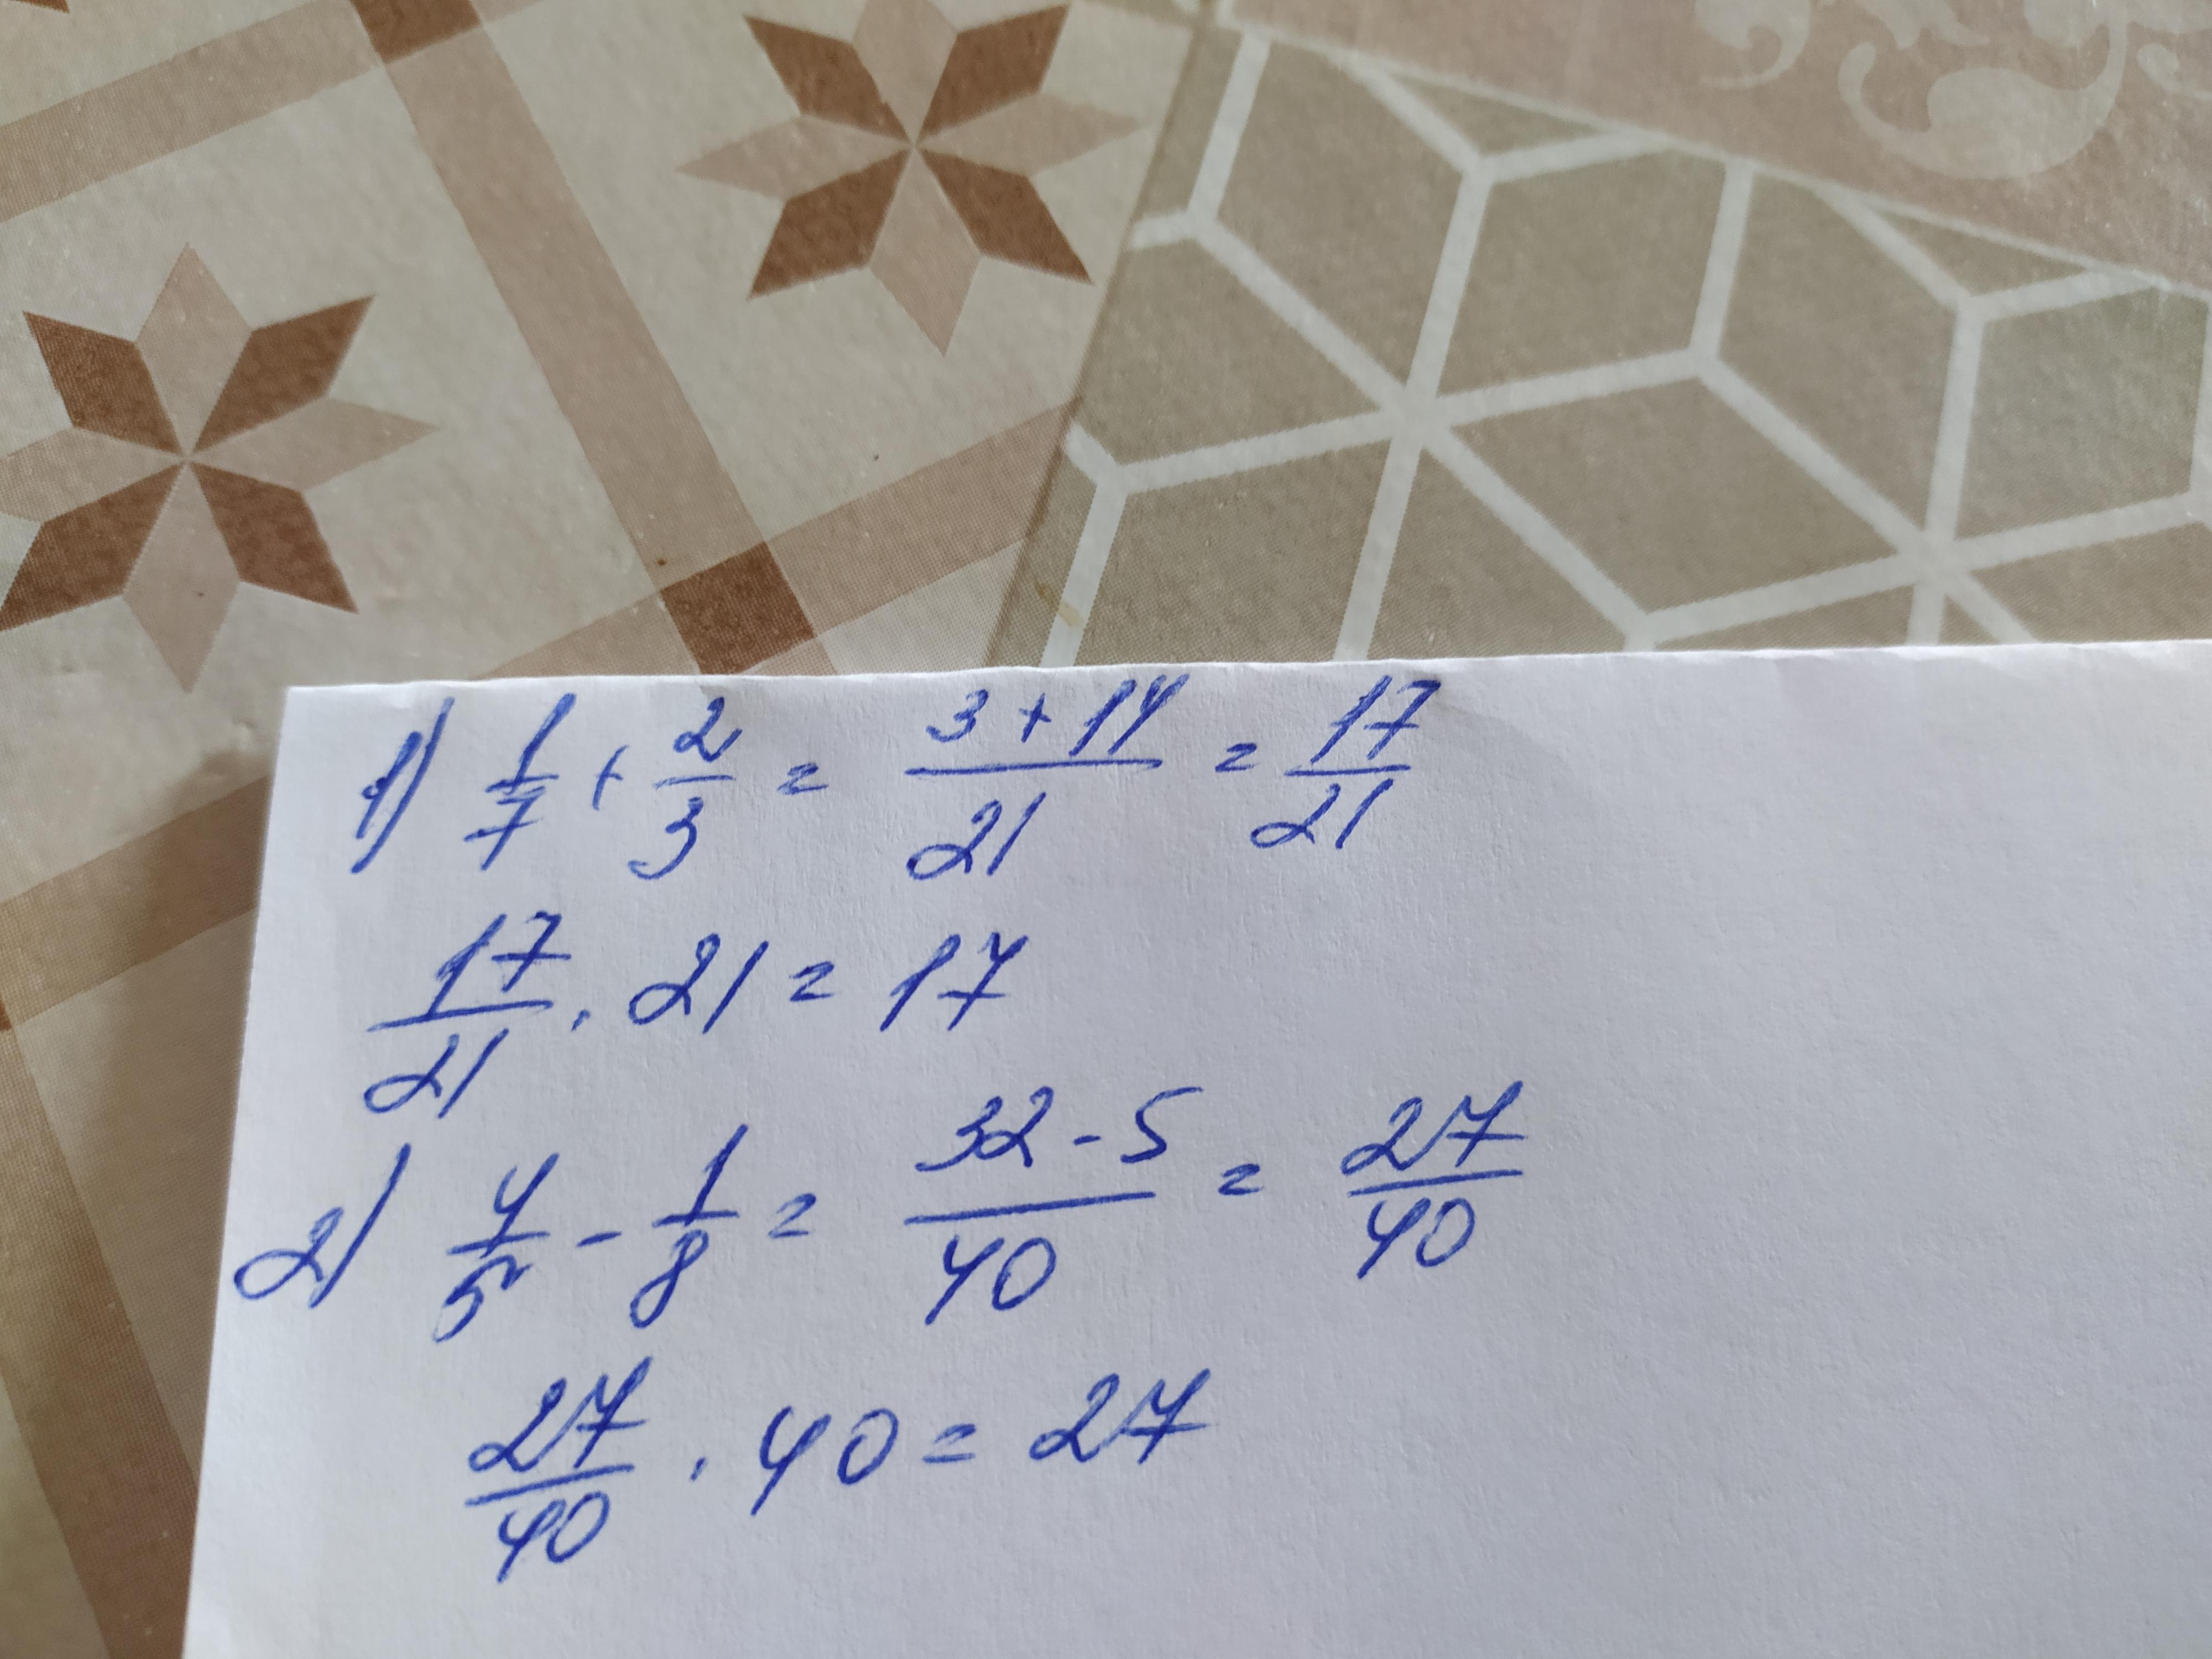 1) 1/7 + 2/3 = (3 + 14)/21 = 17/21
17/21 · 21 = 17
2) 4/5 - 1/8 = (32 - 5)/40 = 27/40
27/40 · 40 = 27